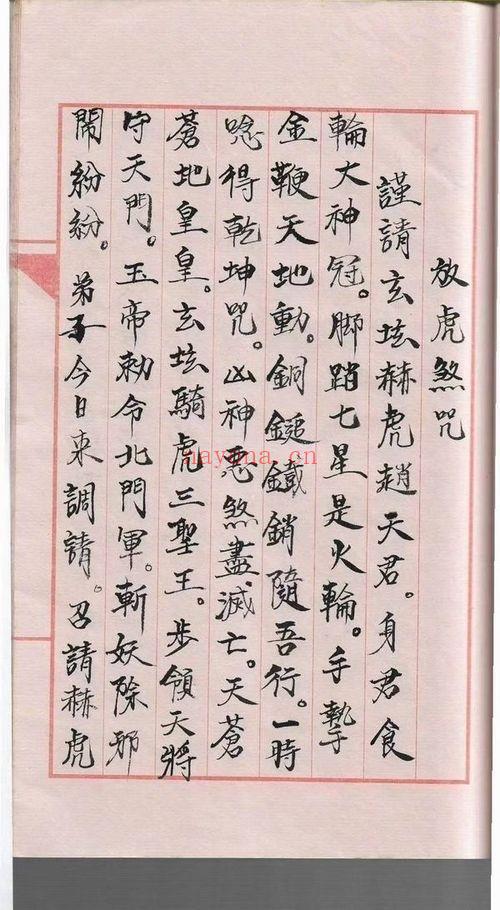 放虎煞咒
謹請玄坛赫虎趙天君。身君食
輪大神冠。脚踏七星是火輪。手執
金鞭天地動。銅鎚鐵銷隨吾行。一時
唸得乾坤咒。凶神恶煞盡滅亡。天蒼
蒼地皇皇。玄坛騎虎三聖王。步領天將
守天門。玉帝勅令北門軍。斬妖除邪
鬧紛紛。弟子今日来調請。召請赫虎
nayona.cn